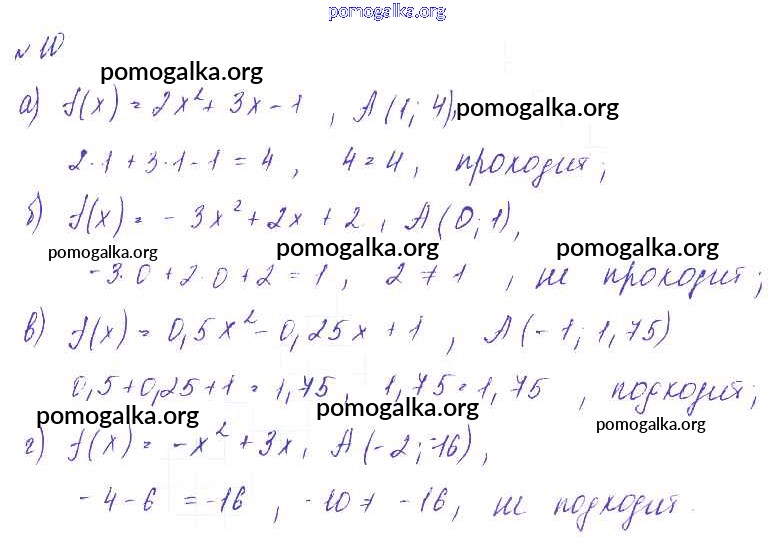 pomogalka.org
№ 10
pomogalka.org
а) f(x) = 2x² + 3x - 1 , A(1; 4), pomogalka.org
2·1 + 3·1 - 1 = 4 , 4 = 4 , проходит;
б) f(x) = - 3x² + 2x + 2 , A(0; 1),
pomogalka.org pomogalka.org pomogalka.org
-3·0 + 2·0 + 2 = 1 , 2 ≠ 1 , не проходит;
в) f(x) = 0,5x² - 0,25x + 1 , A(-1; 1,75)
0,5 + 0,25 + 1 = 1,75 , 1,75 = 1,75 , подходит;
pomogalka.org pomogalka.org pomogalka.org
г) f(x) = -x² + 3x , A(-2; -16),
-4-6 = -16 , -10 ≠ -16 , не подходит.